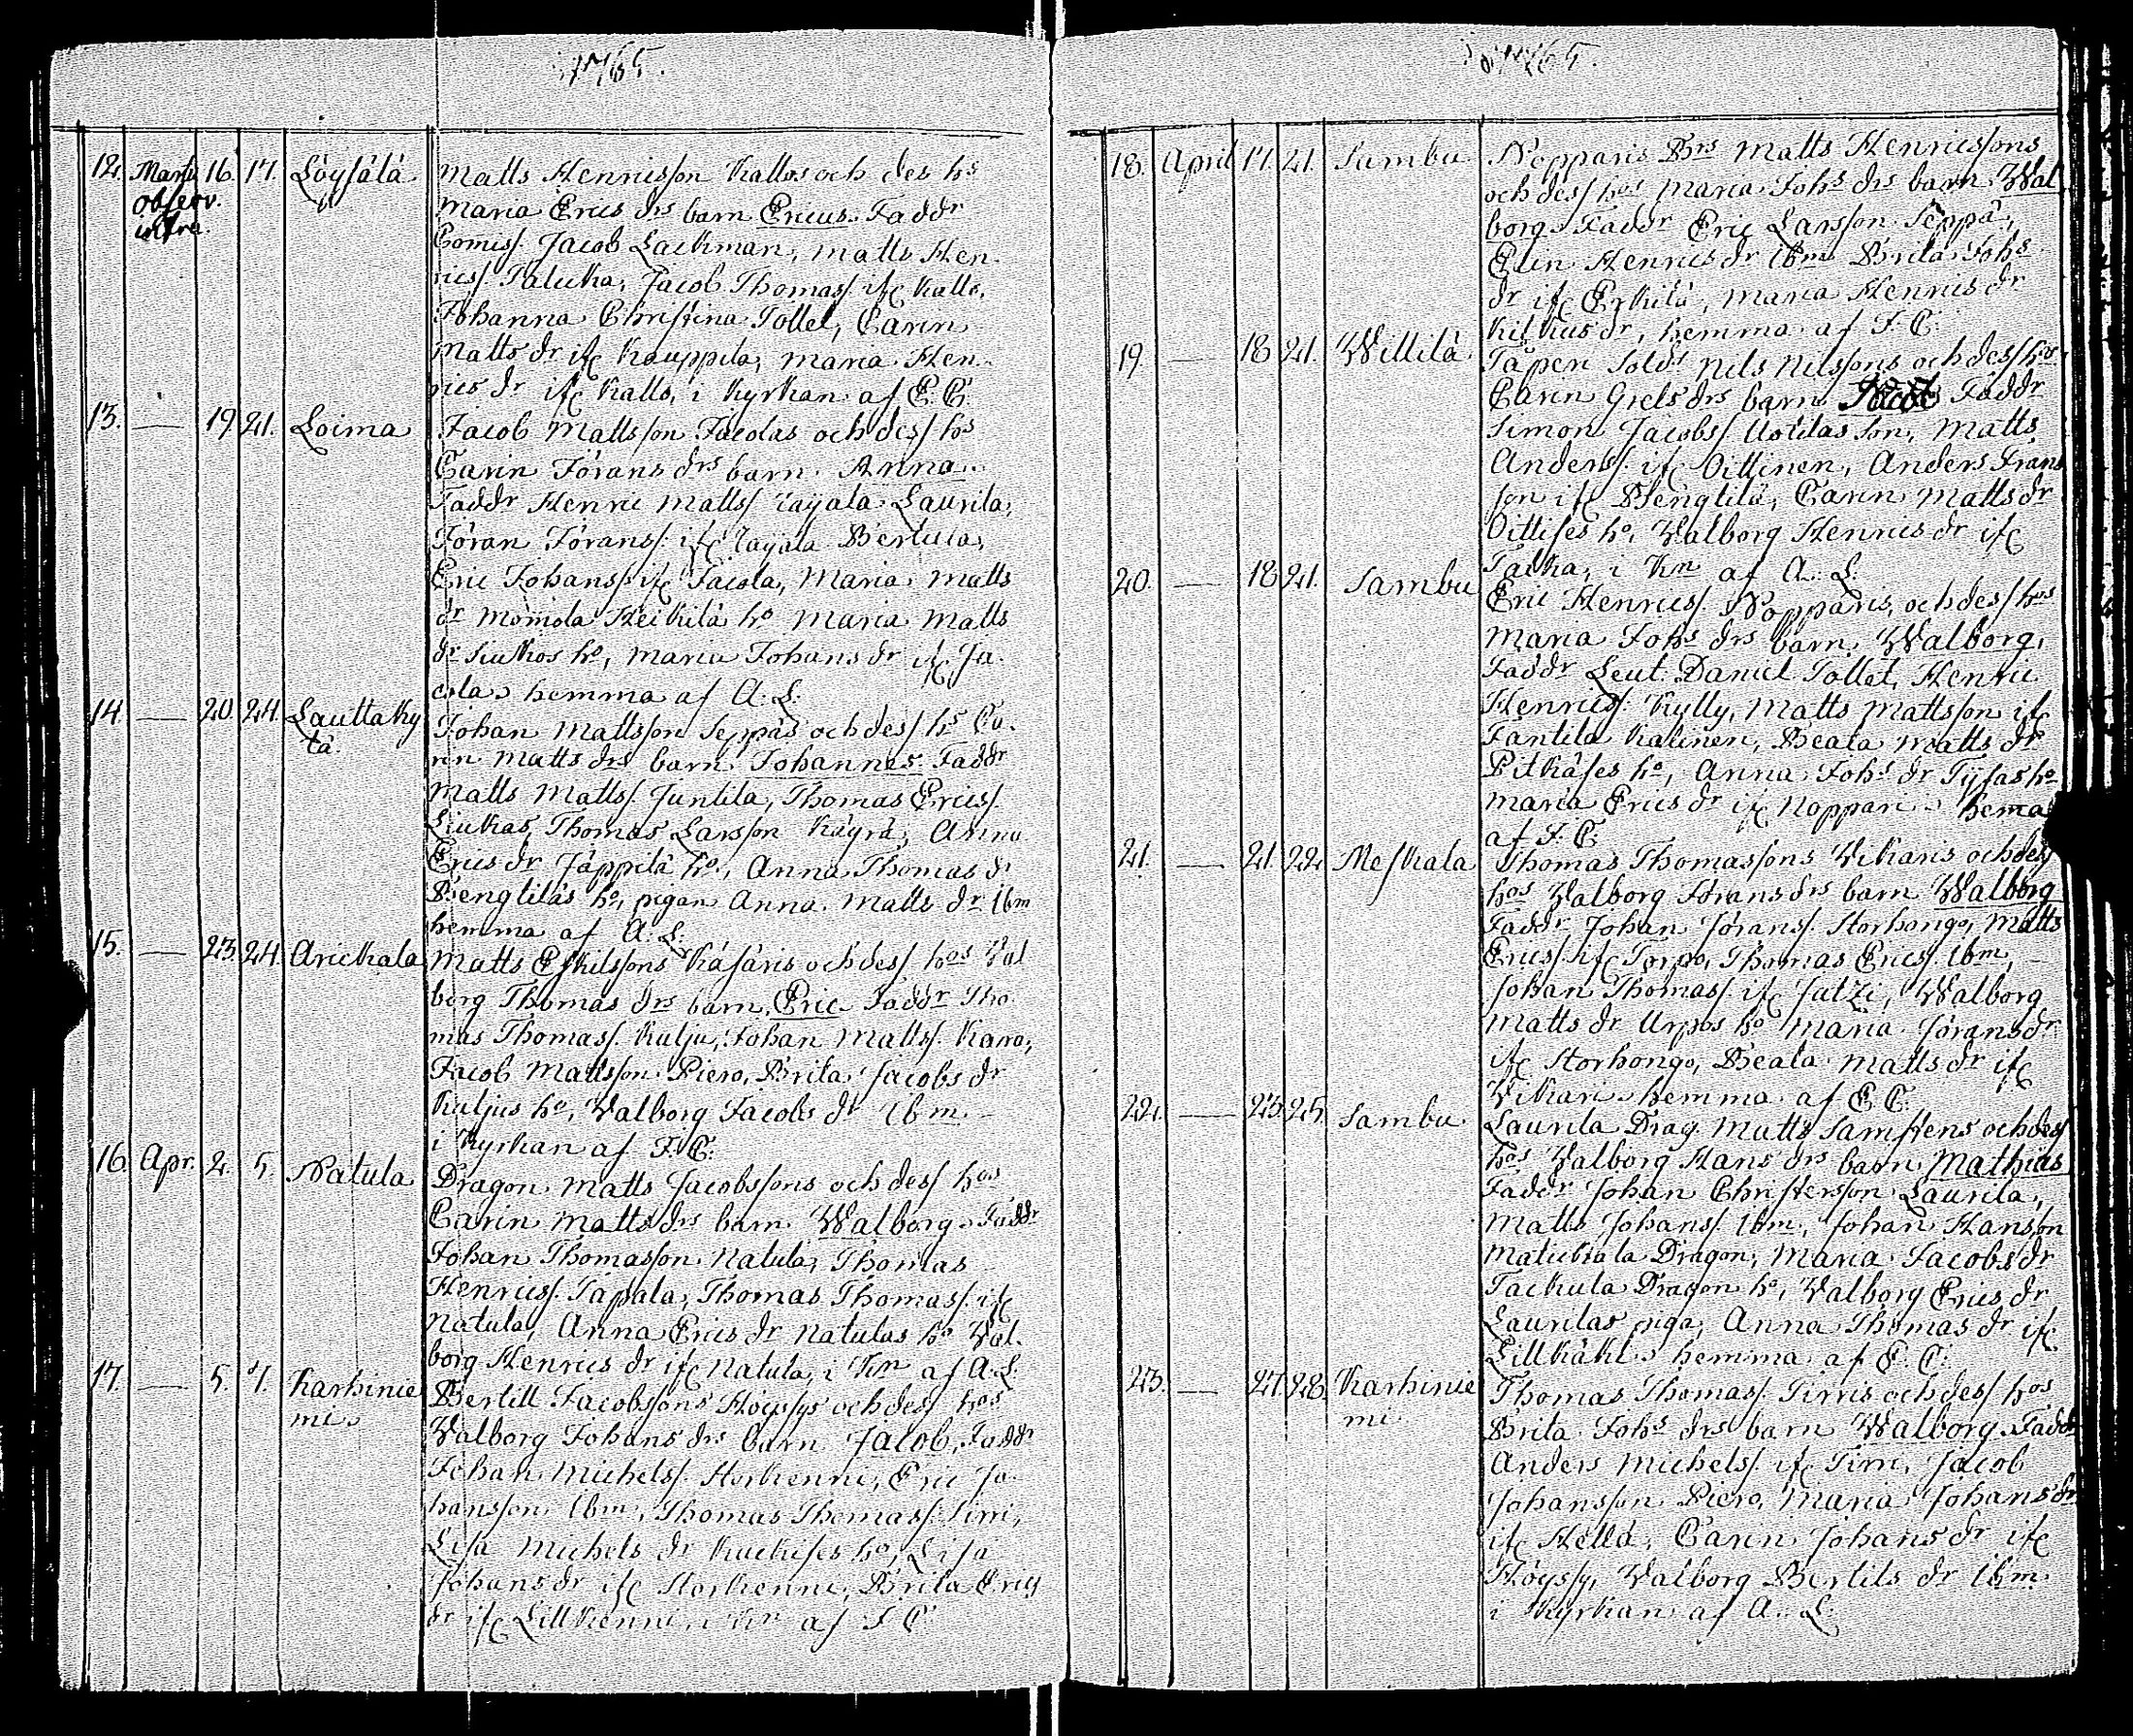 1765.
12. Martii 16. 17. Löysälä Matts Henricsson Kallos och des hs
observ. Maria Erics drs barn Ericus. Faddr
infra. Comiss. Jacob Lackman, Matts Hen
rics/. Palucka, Jacob Thomas/. ifr Kallo,
Johanna Christina Tollet, Carin
Matts dr ifr Kauppila, Maria Hen
rics dr ifr Kallo, i Kyrkan af E. C.
13. — 19 21. Loima Jacob Matts son Jacolas och dess hs
Carin Jörans drs barn Anna.
Faddr Henric Matts/. Laurila,
Jöran Jörans/. ifr Bertula,
Eric Johans/. ifr Jacola, Maria Matts
dr Momola Heikkilä ho Maria Matts
dr Siukos ho, Maria Johans dr ifr Ja
cola, hemma af A. L.
14. — 20. 24. Lauttaky Johan Mattsson Seppäs och dess hs Ca
lä. rin Matts drs barn Johannes. Faddr
Matts Matts/. Juntila, Thomas Erics/.
Liukas, Thomas Larsson Käyrä, Anna
Erics dr Jäppilä ho, Anna Thomas dr
Bengtiläs ho, pigan Anna Matts dr ibm
hemma af A. L.
15. — 23. 24. Arickala Matts Eskilssons Käsäris och dess hos Val
borg Thomas drs barn Eric. Faddr Tho
mas Thomas/. Kulju, Johan Matts/. Karo,
Jacob Mattsson Piero, Brita Jacobs dr
Kuljus ho, Walborg Jacobs dr ibm.
i Kyrkan af J. C.
16. Apr. 2. 5. Natula Dragon Matts Jacobssons och dess hos
Carin Matts drs barn Walborg. Faddr
Johan Thomasson Natula, Thomas
Henrics/. Tapala, Thomas Thomas/. ifr
Natula, Anna Erics dr Natulas ho Wal
borg Henrics dr ifr Natula, i Kn af A. L.
17. — 5. 7. Karhinie Bertill Jacobssons Höyssys och dess hos
mi. Walborg Johans drs barn Jacob. Faddr
Johan Michels/. Storkenni, Eric Jo
hansson ibm, Thomas Thomas/. Tirri,
Lisa Michels dr Kuckises ho, Lisa
Johans dr ifr Storkenni, Brita Erics
dr ifr Lillkenni, i Kn af J. C.
1765.
18. April 17. 21. Sambu Nopparis Brs Matts Henricssons
och dess hos Maria Johs drs barn Wal
borg. Faddr Eric Larsson Seppä,
Elin Henrics dr ibm Brita Johs
dr ifr Erkilä, Maria Henrics dr
hemma af J. C.
19. — 18 21. Willilä Täperi Soldt Nils Nilssons och dess hos
Carin Grels drs barn Faddr
Simon Jacobs/. Uotilas Son, Matts
Anders/. ifr Oittinen, Anders Frans
son ifr Bengtilä, Carin Matts dr
Oittises ho, Walborg Henrics dr ifr
Talka, i Kn af A. L.
20. — 18 21. Sambu Eric Henrics/. Nopparis, och dess hos
Maria Johs drs barn Walborg.
Faddr Leut. Daniel Tollet, Henric
Henrics/. Kylly, Matts Mattsson ifr
Jäntilä Kalinen, Beata Matts dr
Pitkäses ho, Anna Johs dr Tysas ho
Maria Erics dr ifr Noppari hema
af J. C.
21. — 21. 22. Meskala Thomas Thomassons Wikaris och dess
hos Walborg Jörans drs barn Walborg
Faddr Johan Jörans/. Storhongo, Matts
Erics/. ifr Torpo, Thomas Erics/. ibm,
Johan Thomas/. ifr Jutzi, Walborg
Matts dr Urpos ho Maria Jörans dr
ifr Storhongo, Beata Matts dr ifr
Wikari hemma af E. C.
22. — 23 25. Sambu Laurila Drag. Matts Samstens och dess
hos Walborg Hans drs barn Mathias
Faddr Johan Christersson Laurila,
Matts Johans/. ibm, Johan Hansson
Dragon, Maria Jacobs dr
Tackula Dragon ho, Walborg Erics dr
Laurilas piga, Anna Thomas dr ifr
Lillkäkl, hemma af E. C.
23. — 27. 28. Karhinie Thomas Thomas/. Tirris och dess hos
mi. Brita Johs drs barn Walborg. Faddr
Anders Michels/. ifr Tirri, Jacob
Johansson Piero, Maria Johans dr
ifr Hellä, Carin Johans dr ifr
Höyssy, Walborg Bertils dr ibm
i Kyrkan af A. L.